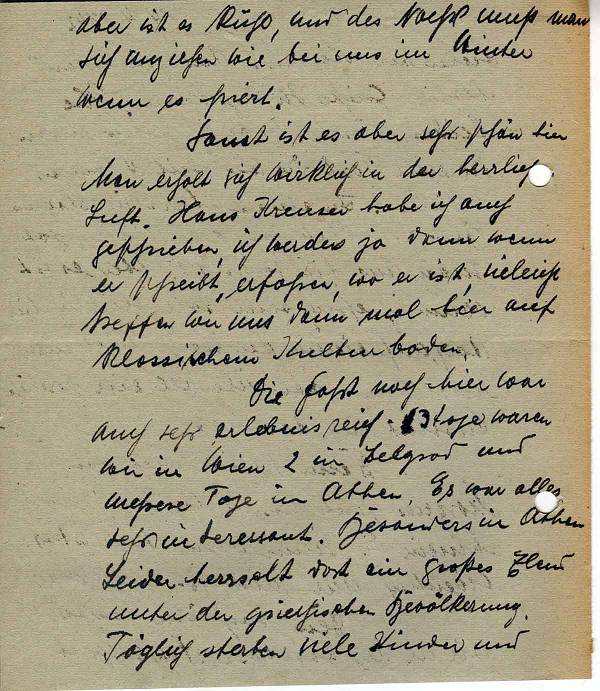 aber ist es kühl, und des Nachts muß man
sich anziehen wie bei uns im Winter
wenn es friert.
Sonst ist es aber sehr schön hier
Man erholt sich wirklich in der herrlich
Luft. Hans Kreuser habe ich auch
geschrieben, ich werdes ja dann wenn
er schreibt, erfahren, wo er ist, vieleicht
treffen wir uns dann mal hier auf
klassischem Kulturboden.
Die Fahrt nach hier war
auch sehr erlebnisreich. 3 Tage waren
wir in Wien 2 in Belgrad und
mehrere Tage in Athen. Es war alles
sehr interessant. Besonders in Athen
Leider herrscht dort ein großes Elend
unter der griechischen Bevölkerung.
Täglich sterben viele Kinder und